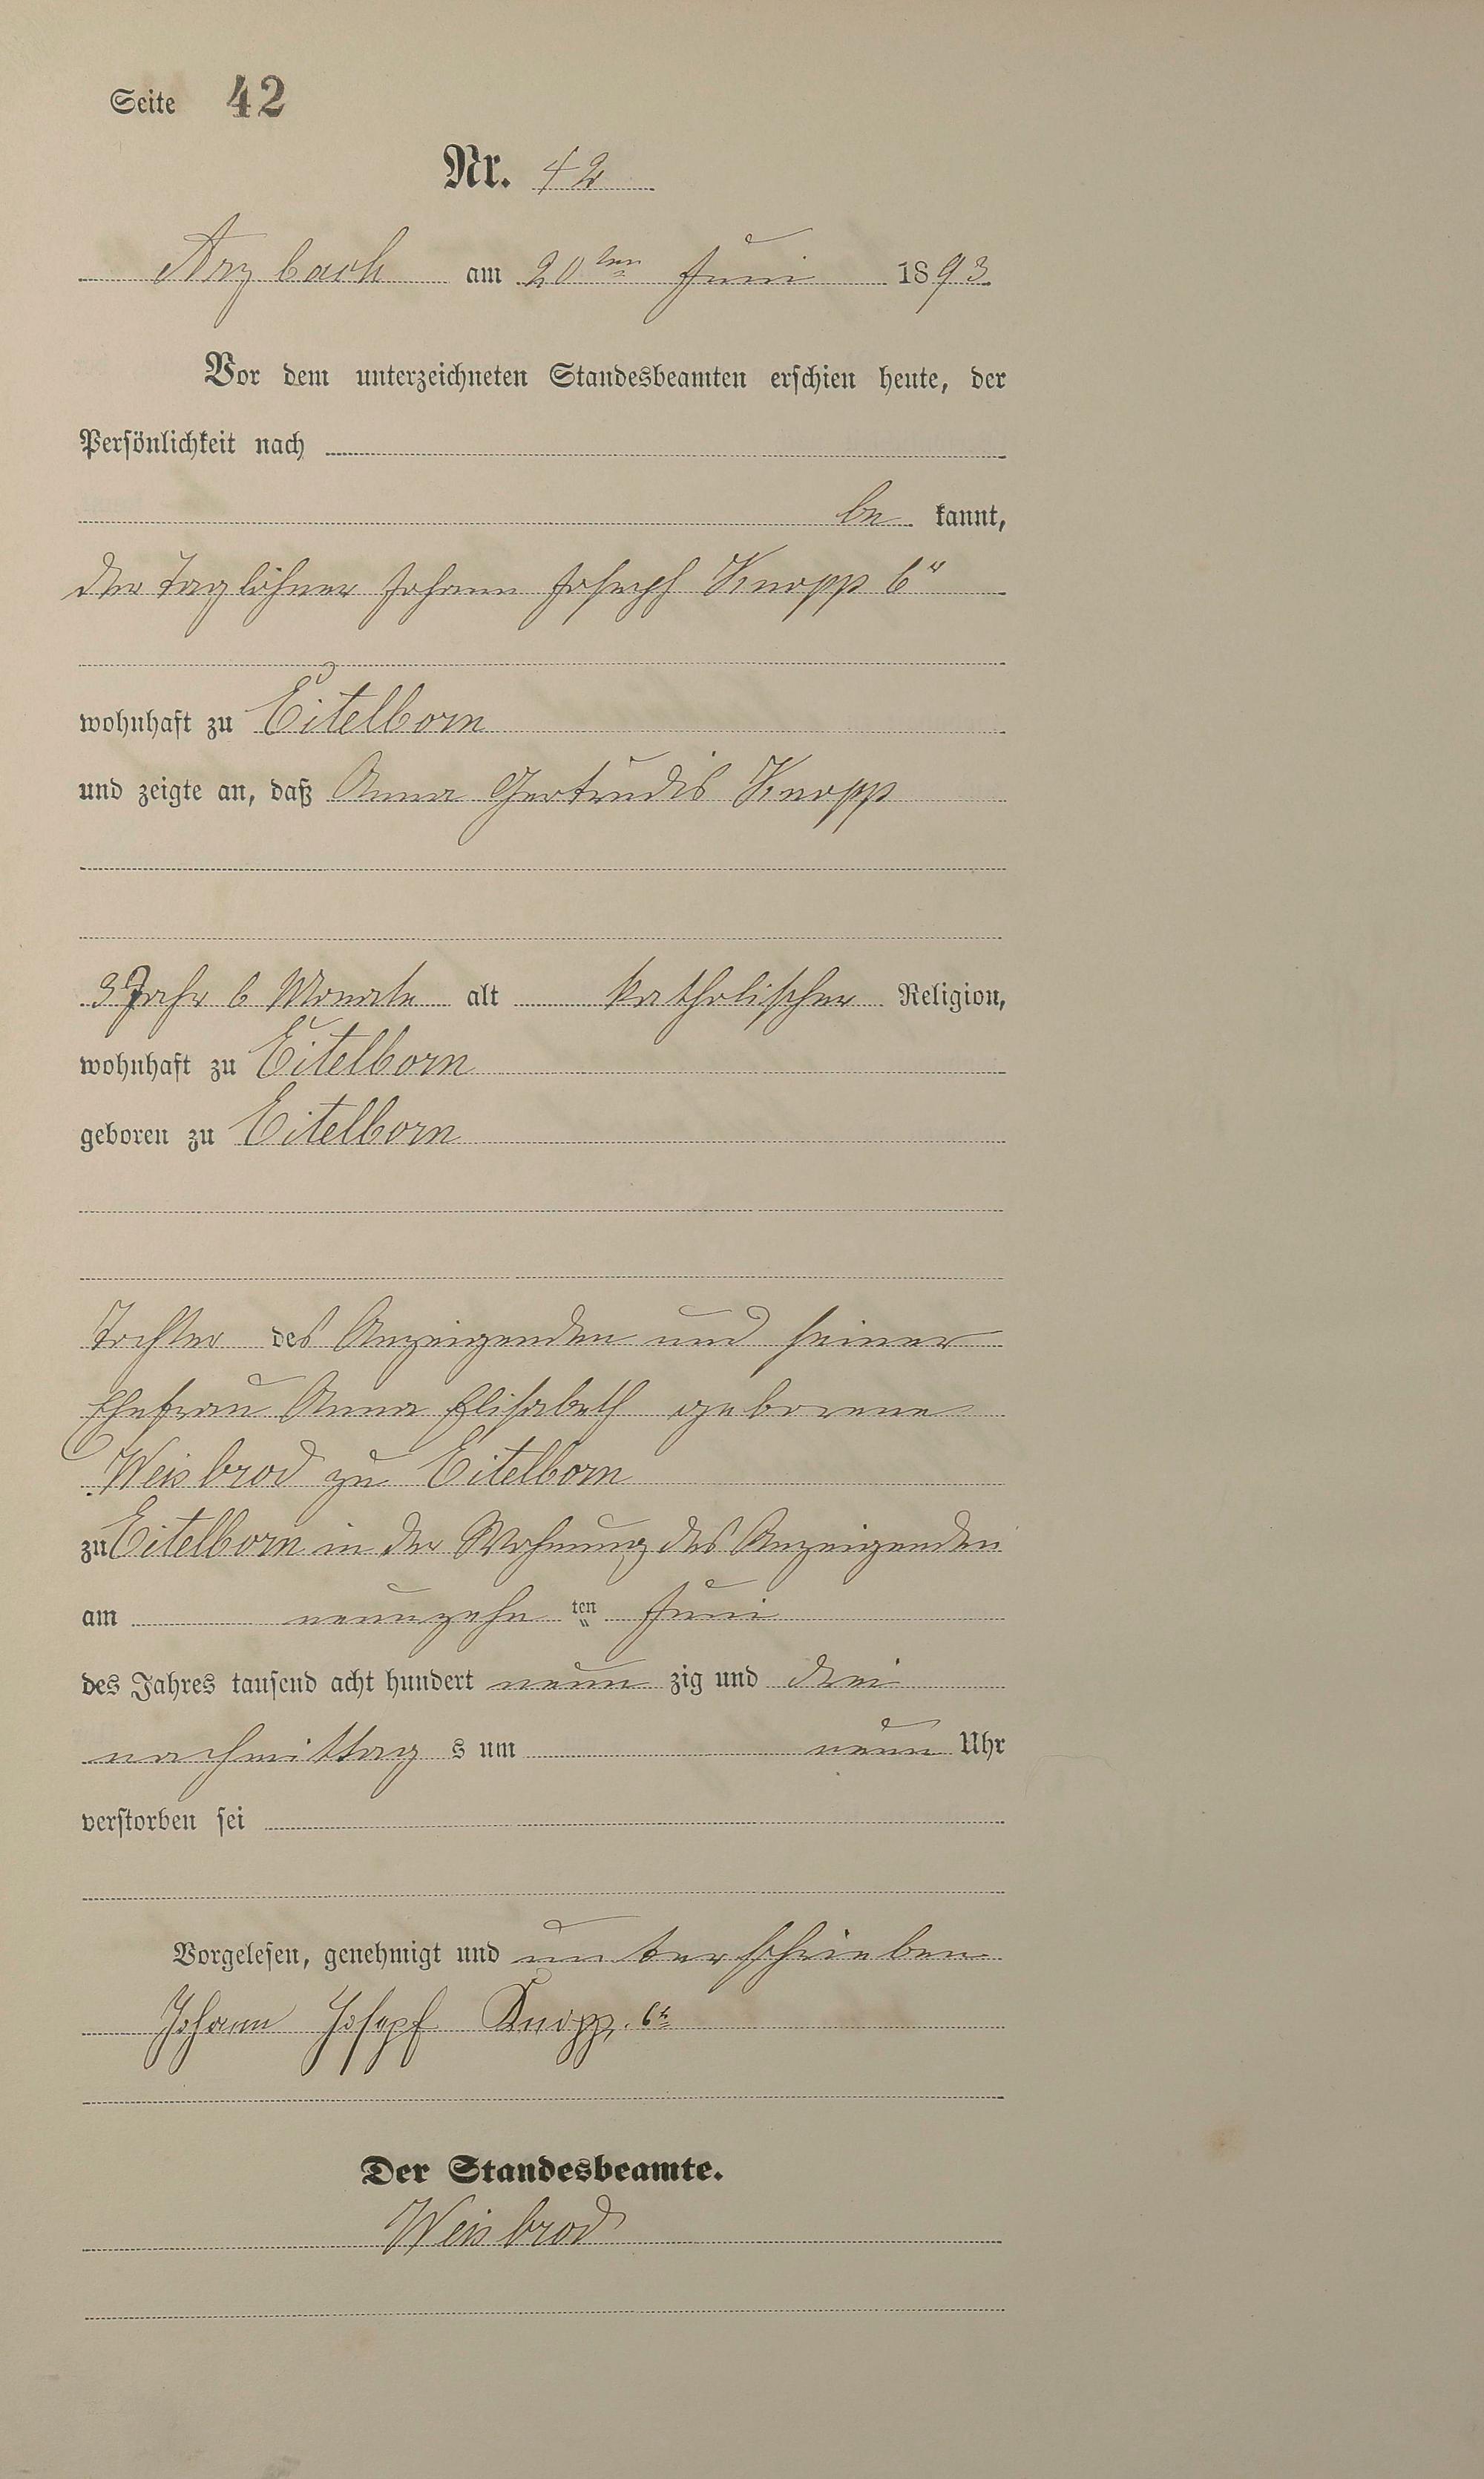 Seite 42
Nr. 42
Arzbach am 20ten Juni 1893
Vor dem unterzeichneten Standesbeamten erschien heute, der
Persönlichkeit nach
be kannt,
der Taglöhner Johann Joseph Knopp 6"
wohnhaft zu Eitelborn
und zeigte an, daß Anna Gertrudis Knopp
3 Jahr 6 Monate alt katholischer Religion,
wohnhaft zu Eitelborn
geboren zu Eitelborn
Tochter des Anzeigenden und seiner
Ehefrau Anna Elisabeth geborene
Weisbrod zu Eitelborn
zu Eitelborn in der Wohnung des Anzeigenden
am neunzehn ten Juni
des Jahres tausend acht hundert neun zig und drei
nachmittag s um neun Uhr
verstorben sei
Vorgelesen, genehmigt und unterschrieben
Johann Josepf Knopp. 6te
Der Standesbeamte.
Weisbrod